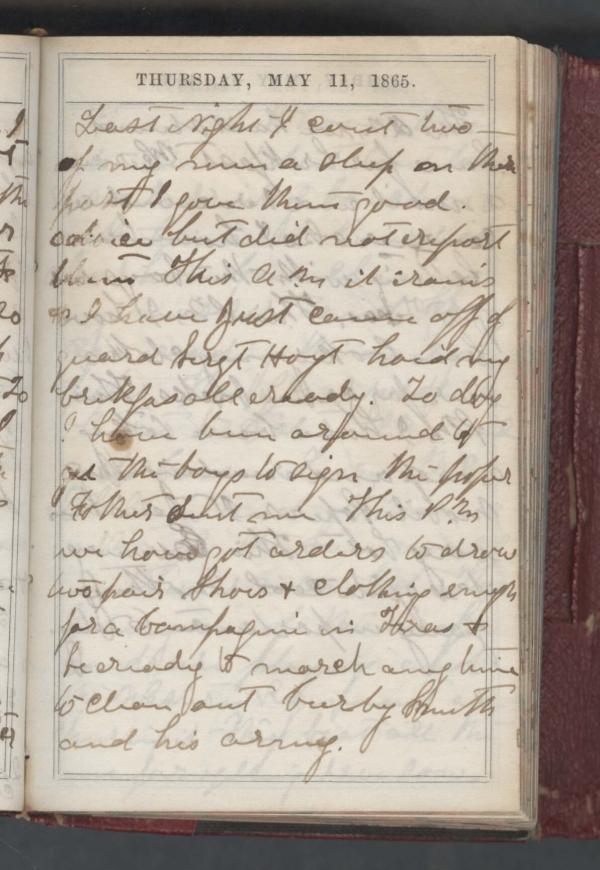 THURSDAY, MAY 11, 1865.
Last night I cout two
of my men a sleep on their
post I gave them good
advice but did not report
them This A M it rains
& I have just came off of
guard Sergt Hoyt haid my
brekfas all ready. To day
I have ben around to
get the boys to sign the paper
Father sent me This P.M
we have got orders to draw
two pair shoes & clothing enugh
for a Campagin in Texas &
be ready to march any time
to clean out Smith
and his army.